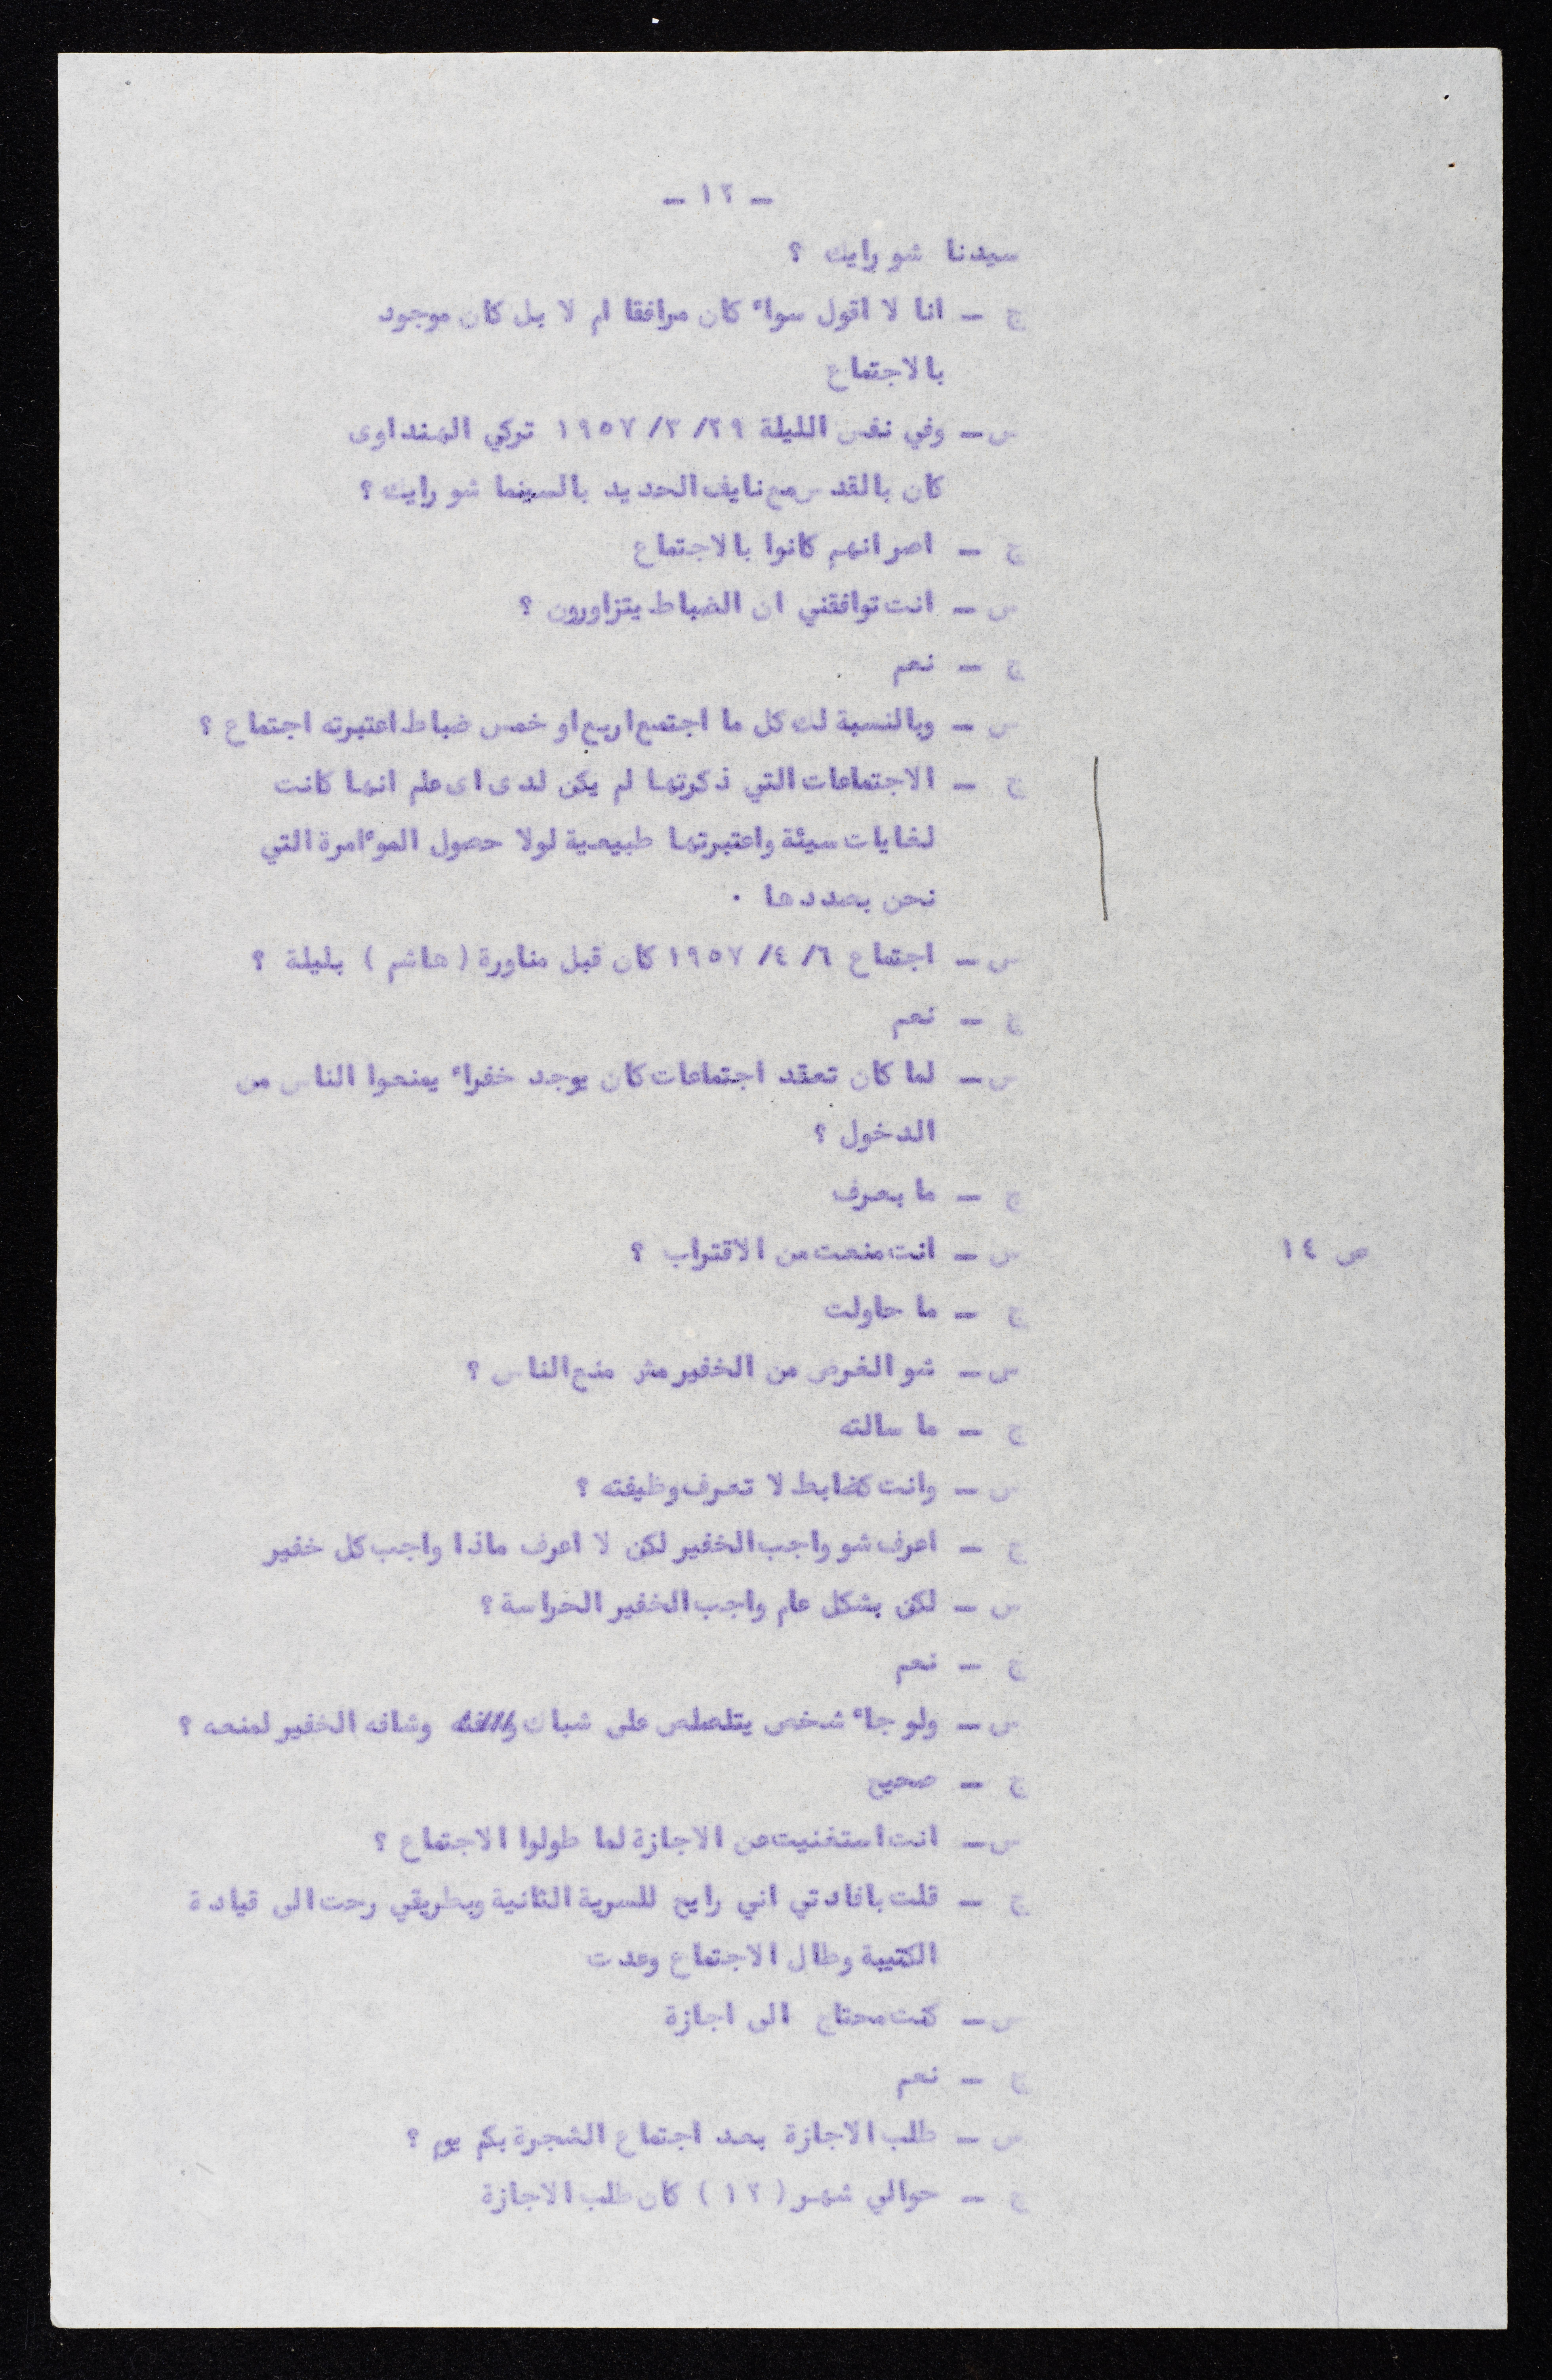 - ١٢ -
سيدنا شو رايك ؟
ج - انا لا اقول سواء كان مرافقا ام لا بل كان موجود
بالاجتماع
س - وفي نفس الليلة ٢٩/ ٣/ ١٩٥٧ تركي الهنداوى
كان بالقدس مع نايف الحديد بالسينما شو رايك ؟
ج - اصر انهم كانوا بالاجتماع
س - انت توافقني ان الضباط يتزاورون ؟
ج - نعم
س - وبالنسبة لك كل ما اجتمع اربع او خمس ضباط اعتبرته اجتماع ؟
ج - الاجتماعات التي ذكرتها لم يكن لدى اى علم انها كانت
لغايات سيئة واعتبرتها طبيعية لولا حصول الموءامرة التي
نحن بصددها .
س - اجتماع ٦/ ٤/ ١٩٥٧ كان قبل مناورة ( هاشم ) بليلة ؟
ج - نعم
س - لما كان تعقد اجتماعات كان يوجد خفراء يمنعوا الناس من
الدخول ؟
ج - ما بعرف
ص ١٤ س - انت منعت من الاقتراب ؟
ج - ما حاولت
س - شو الغرض من الخفير مش منع الناس ؟
ج - ما سالته
س - وانت كضابط لا تعرف وظيفته ؟
ج - اعرف شو واجب الخفير لكن لا اعرف ماذا واجب كل خفير
س - لكن بشكل عام واجب الخفير الحراسة ؟
ج - نعم
س - ولو جاء شخص يتلصلص على شباك وشافه الخفير لمنعه ؟
ج - صحيح
س - انت استغنيت عن الاجازة لما طولوا الاجتماع ؟
ج - قلت بافادتي اني رايح للسرية الثانية وبطريقي رحت الى قيادة
الكتيبة وطال الاجتماع وعدت
س - كنت محتاج الى اجازة
ج - نعم
س - طلب الاجازة بعد اجتماع الشجرة بكم يوم ؟
ج - حوالي شهر ( ١٢ ) كان طلب الاجازة